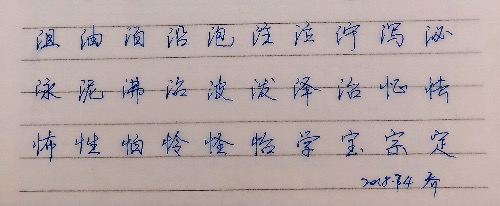 沮 油 泊 沿 泡 注 泣 泞 泻 泌
泳 泥 沸 沼 波 泼 泽 治 怔 怯
怖 性 怕 怜 怪 怡 学 宝 宗 定